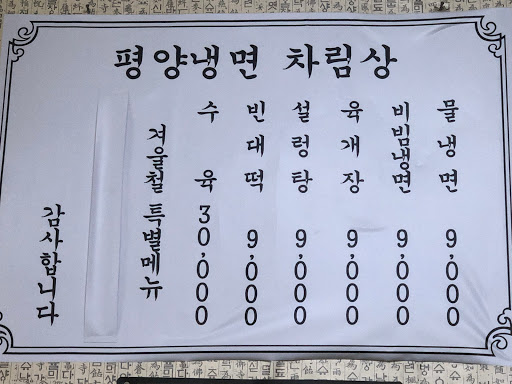 평양냉면 차림상
물냉면 9,000
비빔냉면 9,000
육개장 9,000
설렁탕 9,000
빈대떡 9,000
수육 30,000
겨울철 특별메뉴
감사합니다